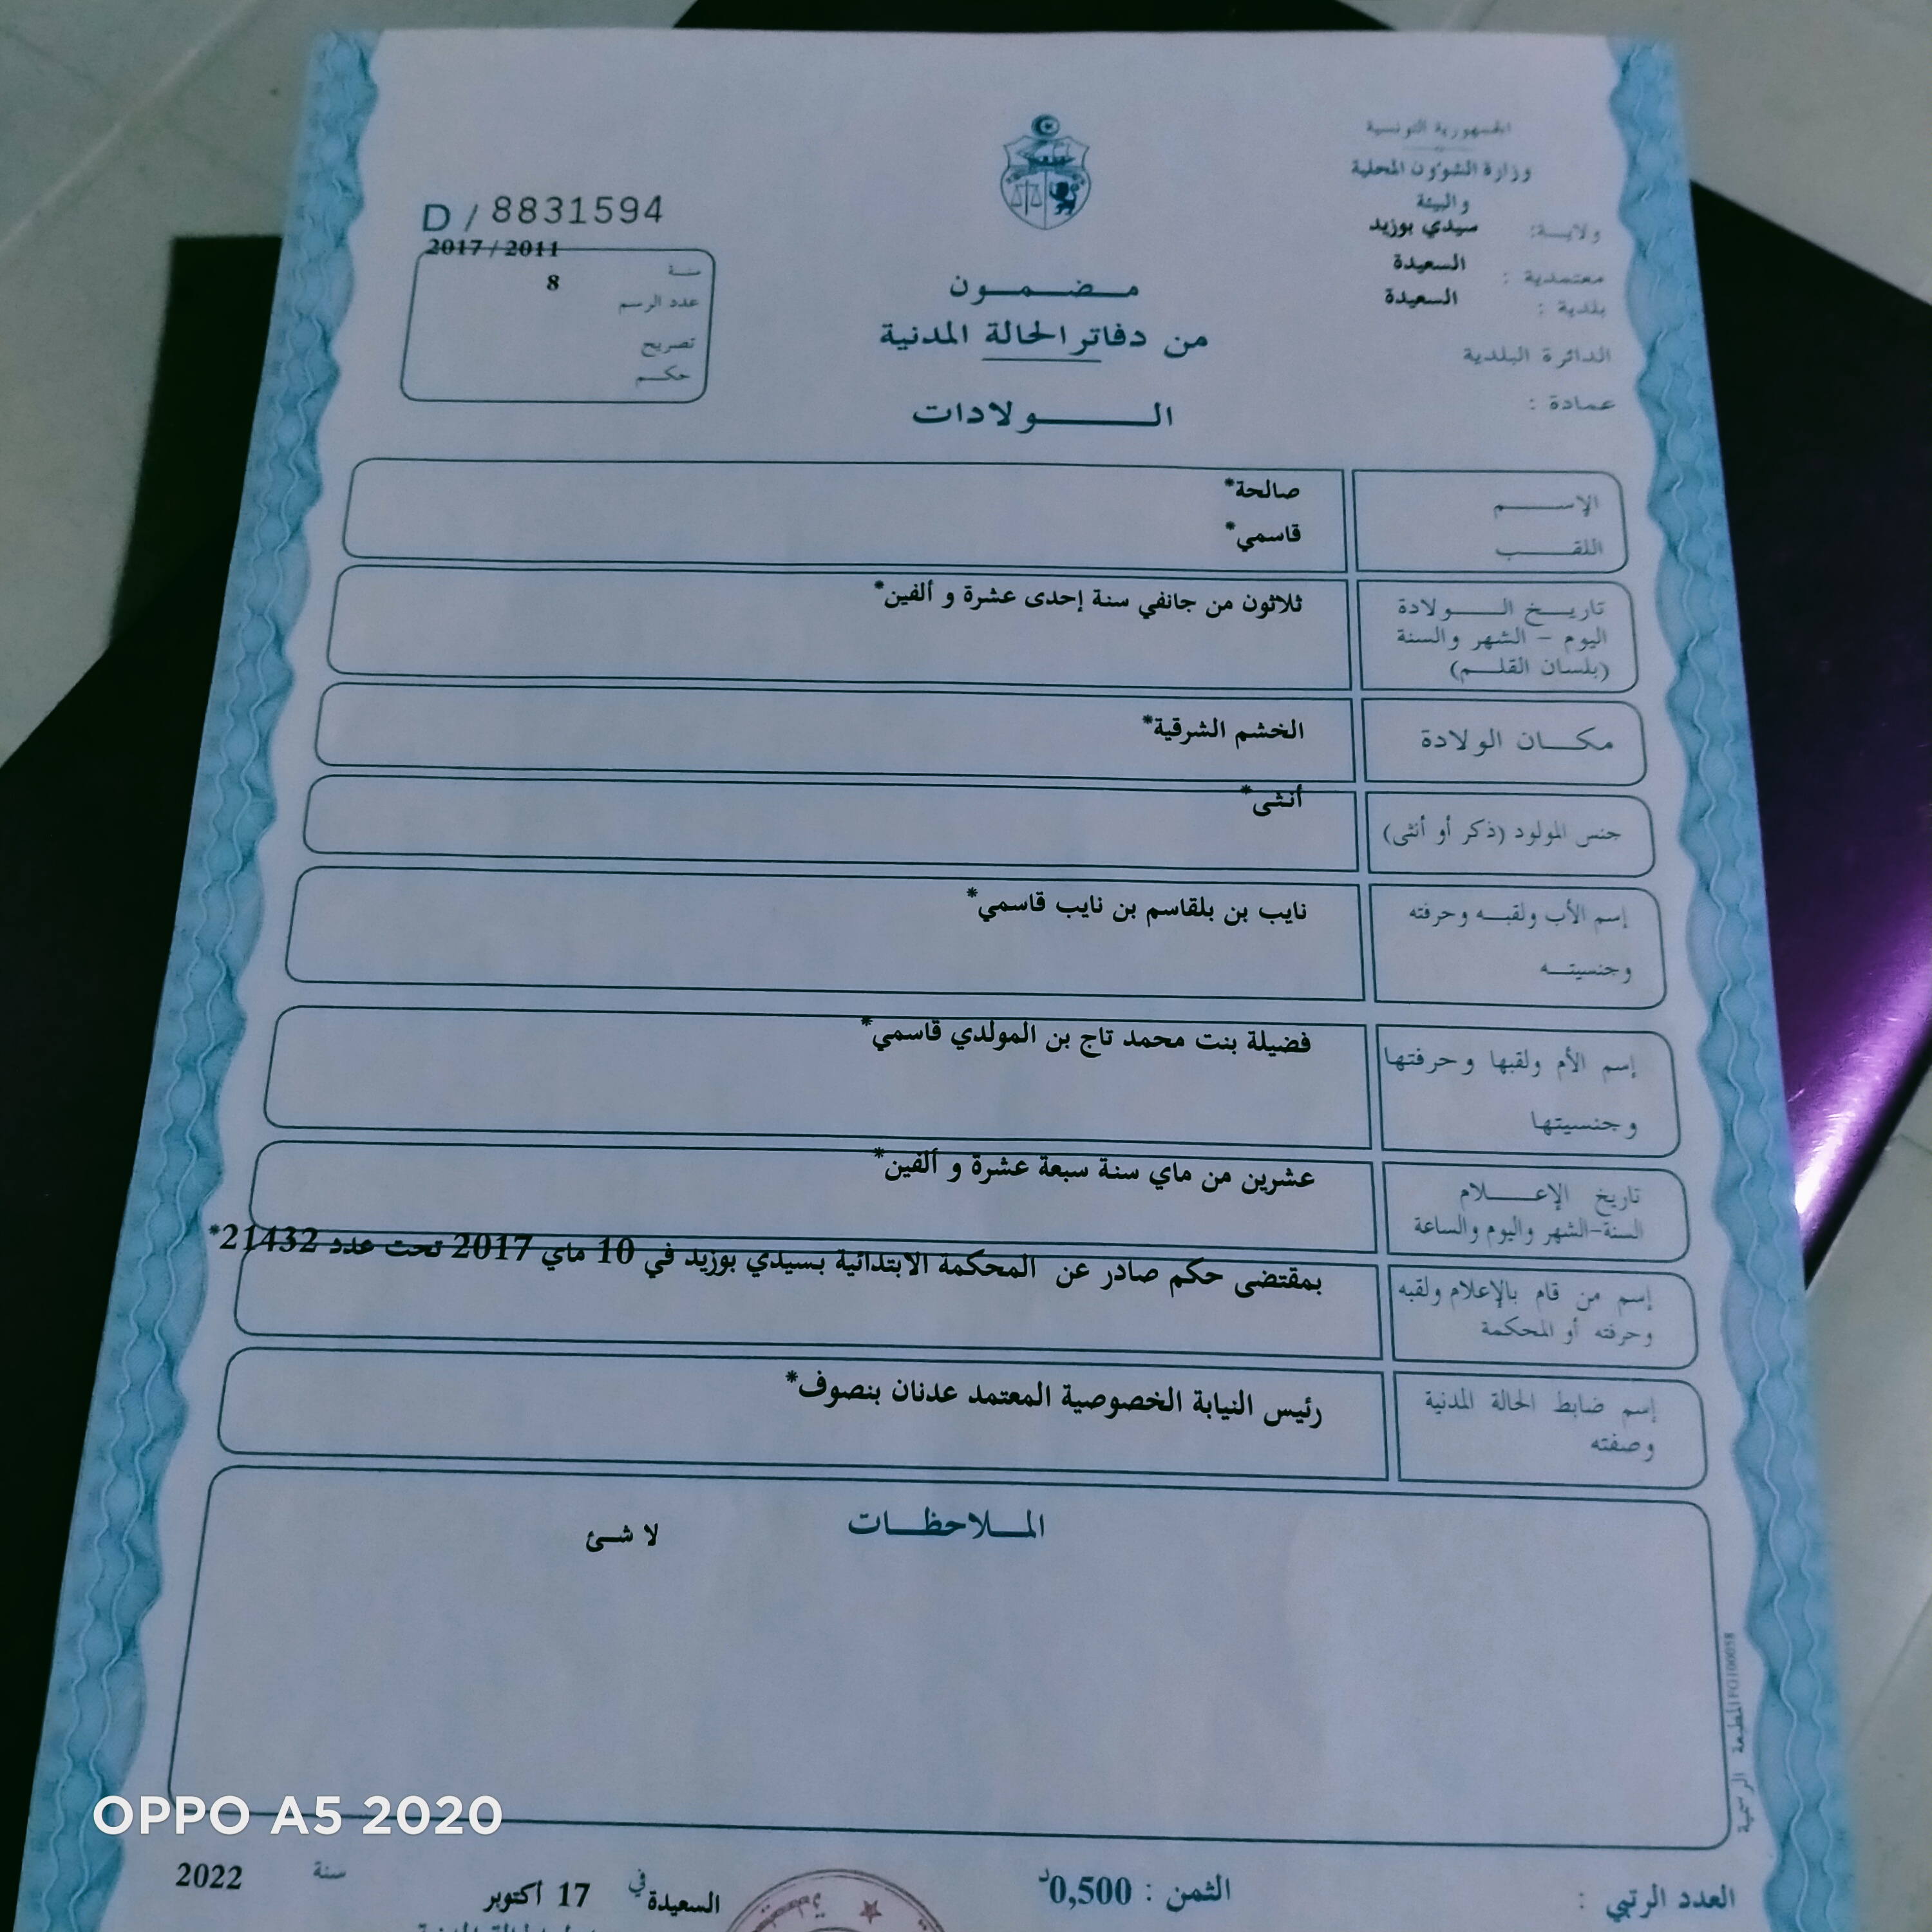 الجمهورية التونسية
وزارة الشؤون المحلية
والبيئة
ولايـــة: سيدي بوزيد
معتمدية : السعيدة
بلدية : السعيدة
الدائرة البلدية
عمادة :
D / 8831594
سنة 2017 / 2011
عدد الرسم 8
تصريح
حكم
مضمون
من دفاتر الحالة المدنية
الولادات
الإسم صالحة*
اللقب قاسمي*
تاريخ الولادة ثلاثون من جانفي سنة إحدى عشرة و ألفين*
اليوم - الشهر والسنة
(بلسان القلم)
مكان الولادة الخشم الشرقية*
جنس المولود (ذكر أو أنثى) أنثى*
إسم الأب ولقبه وحرفته نايب بن بلقاسم بن نايب قاسمي*
وجنسيته
إسم الأم ولقبها وحرفتها فضيلة بنت محمد تاج بن المولدي قاسمي*
وجنسيتها
تاريخ الإعلام عشرين من ماي سنة سبعة عشرة و ألفين*
السنة-الشهر واليوم والساعة
إسم من قام بالإعلام ولقبه بمقتضى حكم صادر عن المحكمة الابتدائية بسيدي بوزيد في 10 ماي 2017 تحت عدد 21432*
وحرفته أو المحكمة
إسم ضابط الحالة المدنية رئيس النيابة الخصوصية المعتمد عدنان بنصوف*
وصفته
الملاحظات
لا شئ
المطبعة الرسمية
العدد الرتبي :
الثمن : 0,500د
السعيدة في 17 أكتوبر سنة 2022
OPPO A5 2020